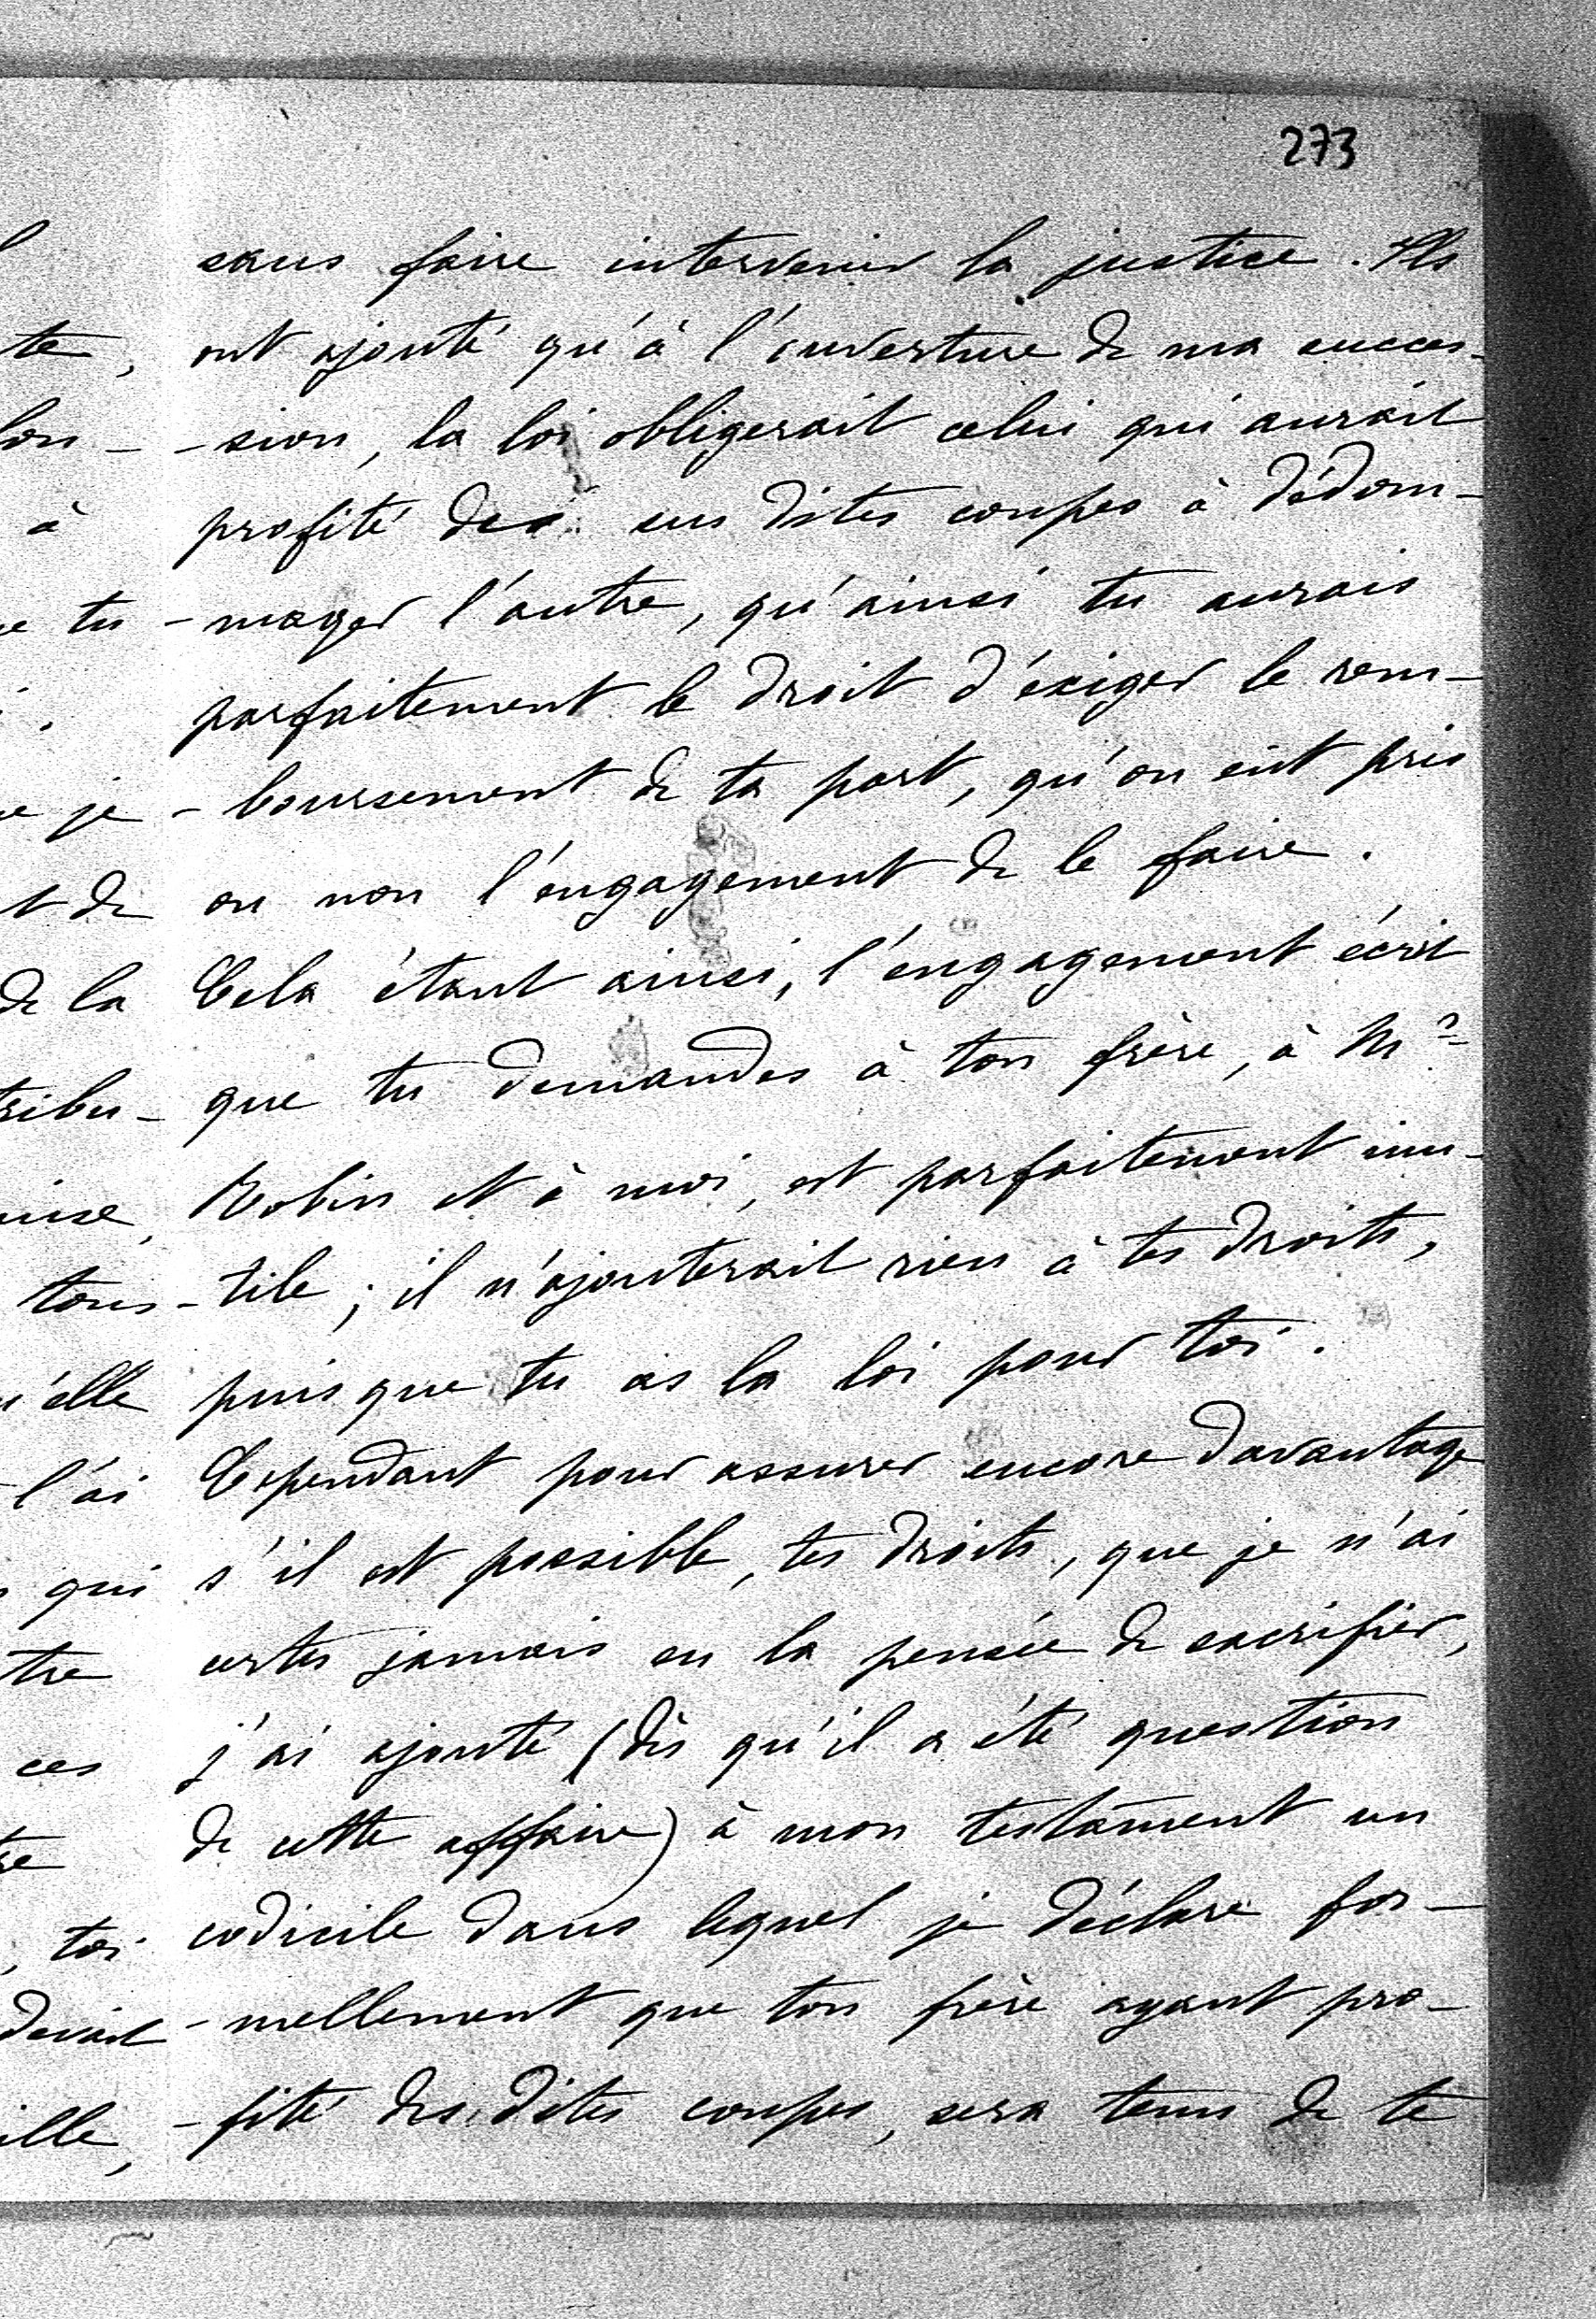 273
sans faire intervenir la justice. Ils
te, ont ajouté qu'à l'ouverture de ma succes-
lon- -sion, la loi obligerait celui qui aurait
à profité des sus dites coupes à dédom-
e tu -mager l'autre, qu'ainsi tu aurais
. parfaitement le droit d'éxiger le rem-
e je -boursement de ta part, qu'on eût pris
t de ou non l'engagement de le faire.
de la Cela étant ainsi, l'engagement écrit
tribu- que tu demandes à ton frère, à Mr
uise, Robin et à moi, est parfaitement inu-
tous -tile; il n'ajouterait rien à tes droits,
u'elle puisque tu as la loi pour toi.
l'ai Cependant pour assurer encore davantage
qui s'il est possible, tes droits, que je n'ai
tre certes jamais eu la pensée de sacrifier,
ces j'ai ajouté (dès qu'il a été question
re de cette affaire) à mon testament un
, toi codicile dans lequel je déclare for-
devait -mellement que ton frère ayant pro-
ille, -fité des dites coupes, sera tenu de te